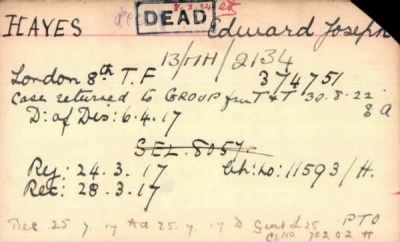 8.3.24
HAYES DEAD Edward Joseph
13/MH/2134
London 8th T.F 374751
Case returned to GROUP from T&T 30.8.22
D: of Dis: 6.4.17 8a
SEL. 8057
Rej: 24.3.17 Ch: No: 11593/H.
Rec: 28.3.17
Dec 25.7.17 Ad 25.7.17 D PTO
702 02 H